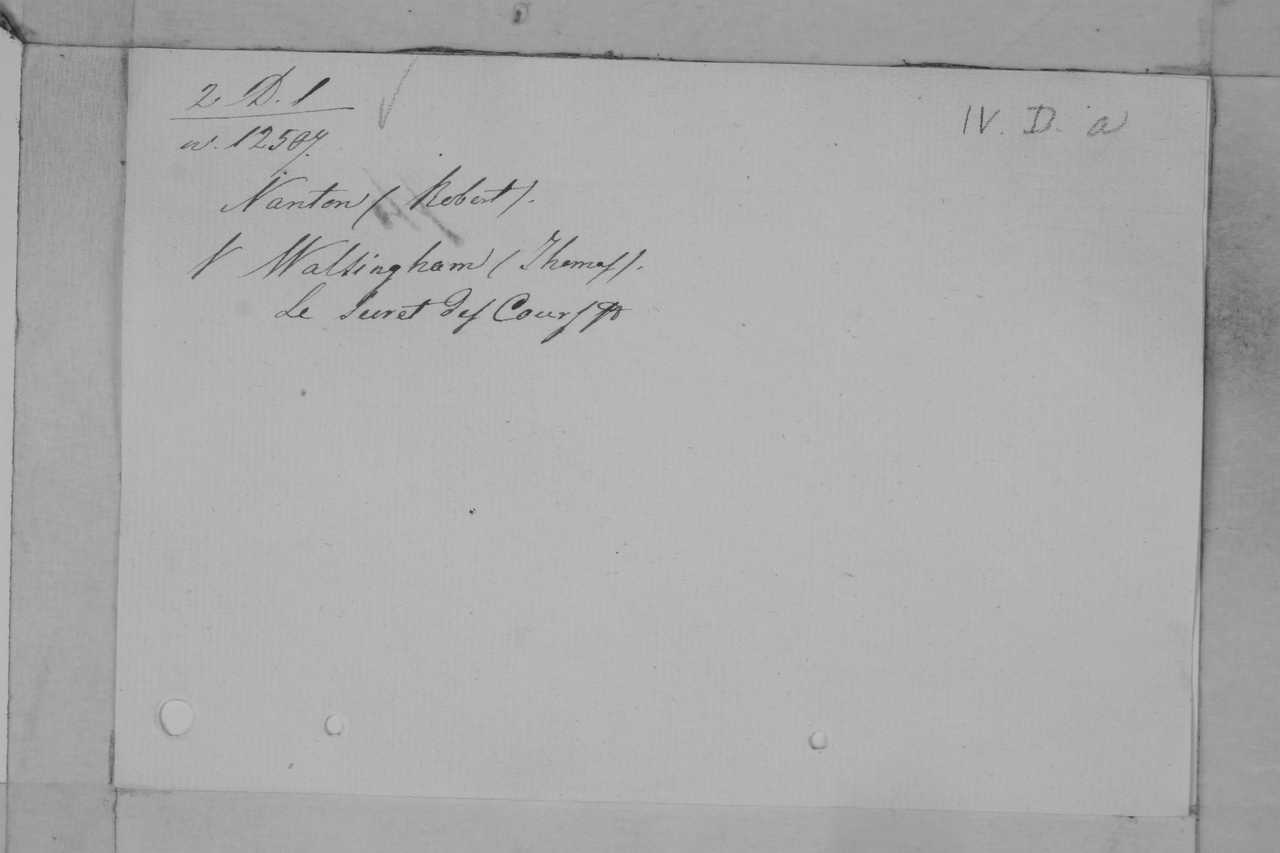 2 D. 1
IV. D. a
n. 12507.
Nanton (Robert).
V Walsingham (Thomas).
Le Secret des Cours